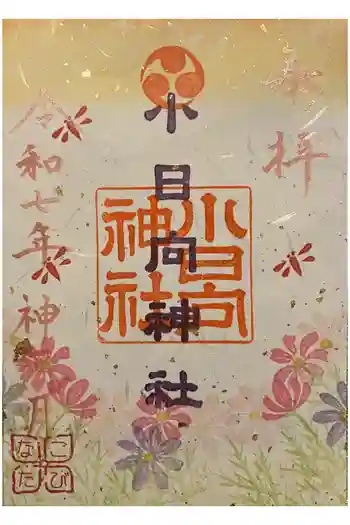 奉拝
小日向神社
小日向
神社
令和七年 神無月
こび
なた